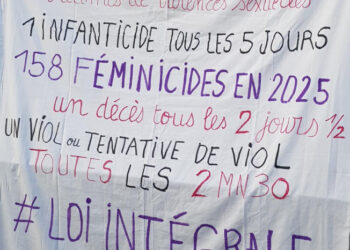 victimes de violences sexuelles
1 INFANTICIDE TOUS LES 5 JOURS
158 FÉMINICIDES EN 2025
un décès tous les 2 jours ½
UN VIOL ou TENTATIVE DE VIOL
TOUTES LES 2 MN 30
# LOI INTÉGRALE